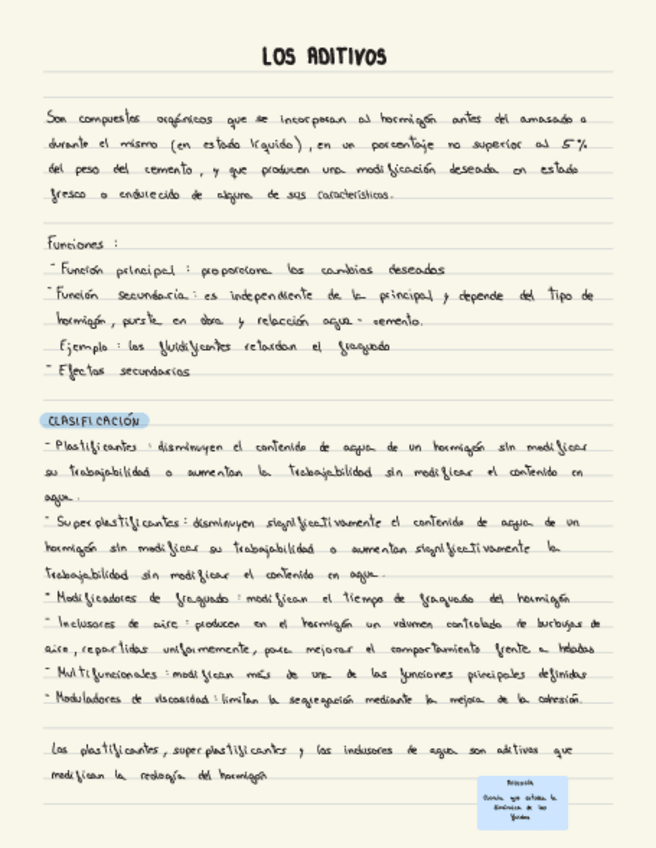 LOS ADITIVOS
Son compuestos orgánicos que se incorporan al hormigón antes del amasado o
durante el mismo (en estado líquido), en un porcentaje no superior al 5%
del peso del cemento, y que producen una modificación deseada en estado
fresco o endurecido de alguna de sus características.
Funciones :
- Función principal : proporciona los cambios deseados
- Función secundaria : es independiente de la principal y depende del tipo de
hormigón, pueste en obra y relacción agua - cemento.
Ejemplo : los fluidificantes retardan el fraguado
- Efectos secundarios
CLASIFICACIÓN
- Plastificantes : disminuyen el contenido de agua de un hormigón sin modificar
su trabajabilidad o aumentan la trabajabilidad sin modificar el contenido en
agua.
- Superplastificantes : disminuyen significativamente el contenido de agua de un
hormigón sin modificar su trabajabilidad o aumentan significativamente la
trabajabilidad sin modificar el contenido en agua.
- Modificadores de fraguado : modifican el tiempo de fraguado del hormigón
- Inclusores de aire : producen en el hormigón un volumen controlado de burbujas de
aire, repartidas uniformemente, para mejorar el comportamiento frente a heladas
- Multifuncionales : modifican más de una de las funciones principales definidas
- Moduladores de viscosidad : limitan la segregación mediante la mejora de la cohesión.
Los plastificantes, superplastificantes y los inclusores de agua son aditivos que
modifican la reología del hormigón
Ciencia que estudia la
dinámica de los
fluidos